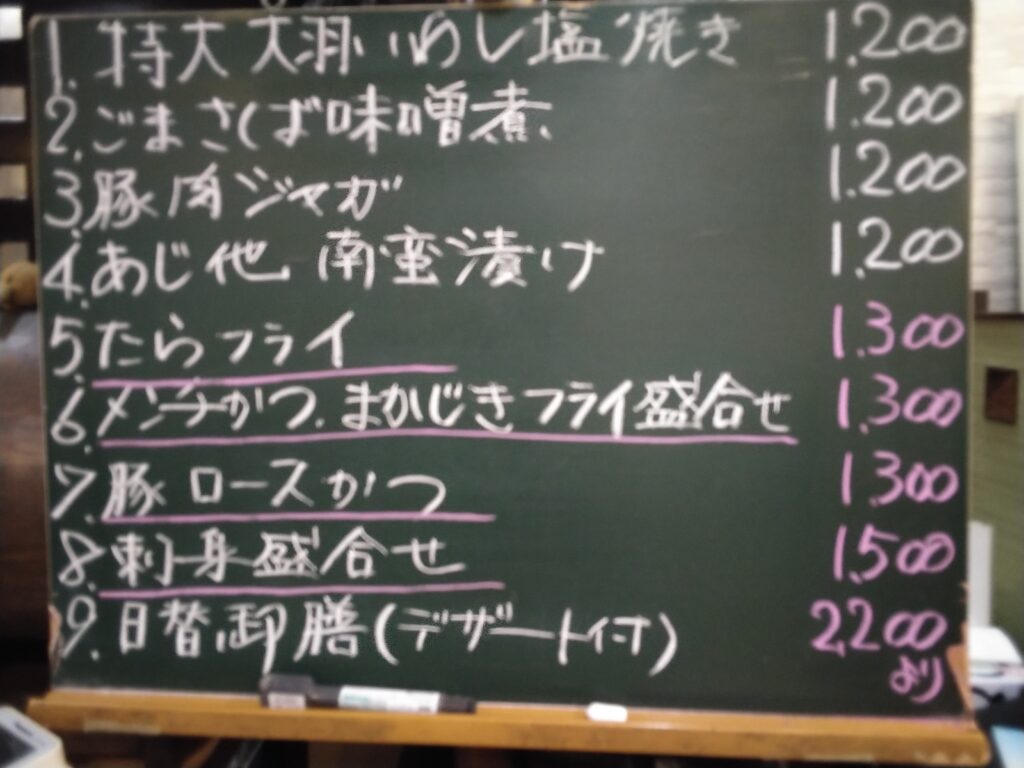 1. 特大 大羽いわし塩焼き 1.200
2. ごまさば味噌煮 1.200
3. 豚肉ジャガ 1.200
4. あじ他 南蛮漬け 1.200
5. たらフライ 1.300
6. メンチかつ.まかじきフライ盛合せ 1.300
7. 豚ロースかつ 1.300
8. 刺身盛合せ 1.500
9. 日替御膳(デザート付) 2.200
より